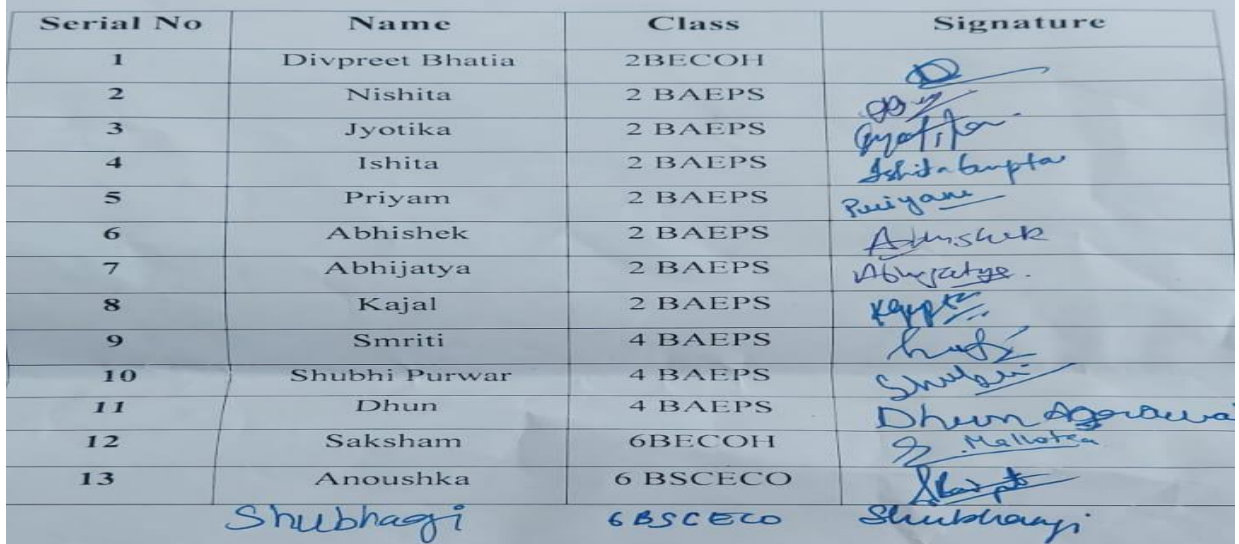 Serial No Name Class Signature
1 Divpreet Bhatia 2BECOH
2 Nishita 2 BAEPS
3 Jyotika 2 BAEPS Jyotika
4 Ishita 2 BAEPS Ishita Gupta
5 Priyam 2 BAEPS Priyam
6 Abhishek 2 BAEPS Abhishek
7 Abhijatya 2 BAEPS Abhijatya.
8 Kajal 2 BAEPS
9 Smriti 4 BAEPS
10 Shubhi Purwar 4 BAEPS Shubhi
11 Dhun 4 BAEPS Dhun Agarwal
12 Saksham 6BECOH S. Malhotra
13 Anoushka 6 BSCECO
Shubhagi 6BSCECO Shubhangi